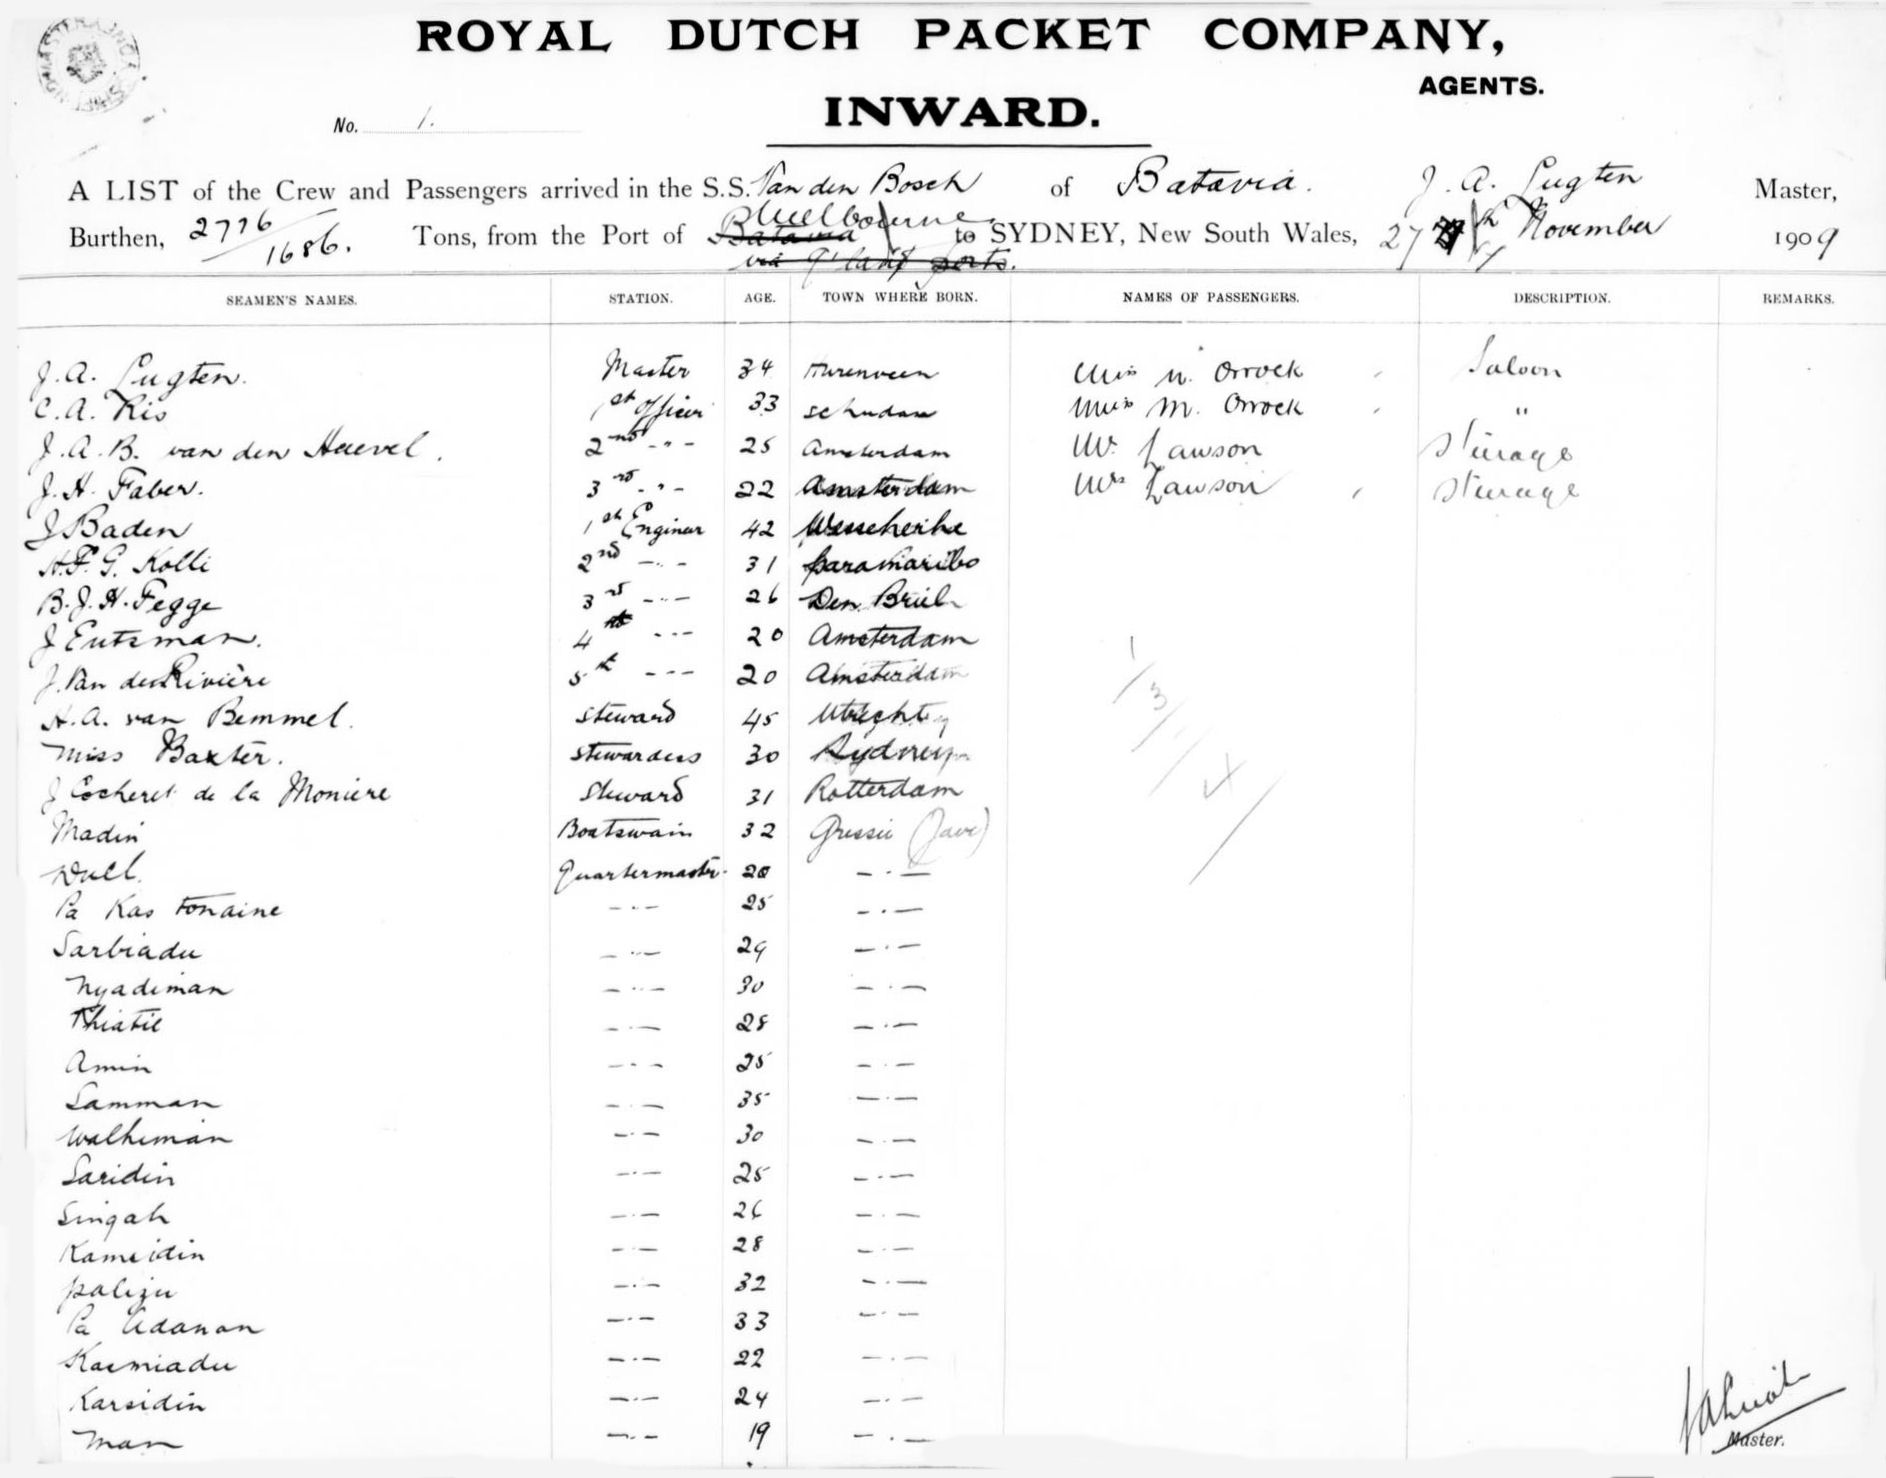 ROYAL DUTCH PACKET COMPANY,
AGENTS.
INWARD.
No. 1.
A LIST of the Crew and Passengers arrived in the S.S. Van den Bosch of Batavia. J. A. Lugten Master,
Burthen, 2776/1686. Tons, from the Port of Batavia Melbourne to SYDNEY, New South Wales, 27 th November 1909
via Q'land ports.
SEAMEN'S NAMES. STATION. AGE. TOWN WHERE BORN. NAMES OF PASSENGERS. DESCRIPTION. REMARKS.
J. A. Lugten. Master 34 Miss N. Orrock Saloon
C. A. Ris 1st Officer 33 Schiedam Miss M. Orrock "
J. A. B. van den Heuvel. 2nd -"- 25 Amsterdam Mr. Lawson Steerage
J. H. Faber. 3rd -"- 22 Amsterdam Mrs Lawson Steerage
J Baden 1st Engineer 42
H. F. G. Kolli 2nd -"- 31 Paramaribo
B. J. H. Fegge 3rd -"- 26 Den Briel
J Eutsman. 4th -"- 20 Amsterdam
J. Van der Rivière 5th -"- 20 Amsterdam
H. A. van Bemmel. Steward 45 Utrecht
Miss Baxter. Stewardess 30 Sydney
J Cocheret de la Moniere Steward 31 Rotterdam
Madin Boatswain 32 Grissee (Java)
Quartermaster 20 -"-
Pa Kas Tonaine -"- 25 -"-
Sarbiadu -"- 29 -"-
Nyadiman -"- 30 -"-
Thiatil -"- 28 -"-
Amin -"- 25 -"-
Samman -"- 35 -"-
Walkiman -"- 30 -"-
Saridin -"- 25 -"-
Singah -"- 26 -"-
Kameidin -"- 28 -"-
Palizu -"- 32 -"-
Pa Adanan -"- 33 -"-
Kasmiadu -"- 22 -"-
Karsidin -"- 24 -"-
Man -"- 19 -"-
Master.